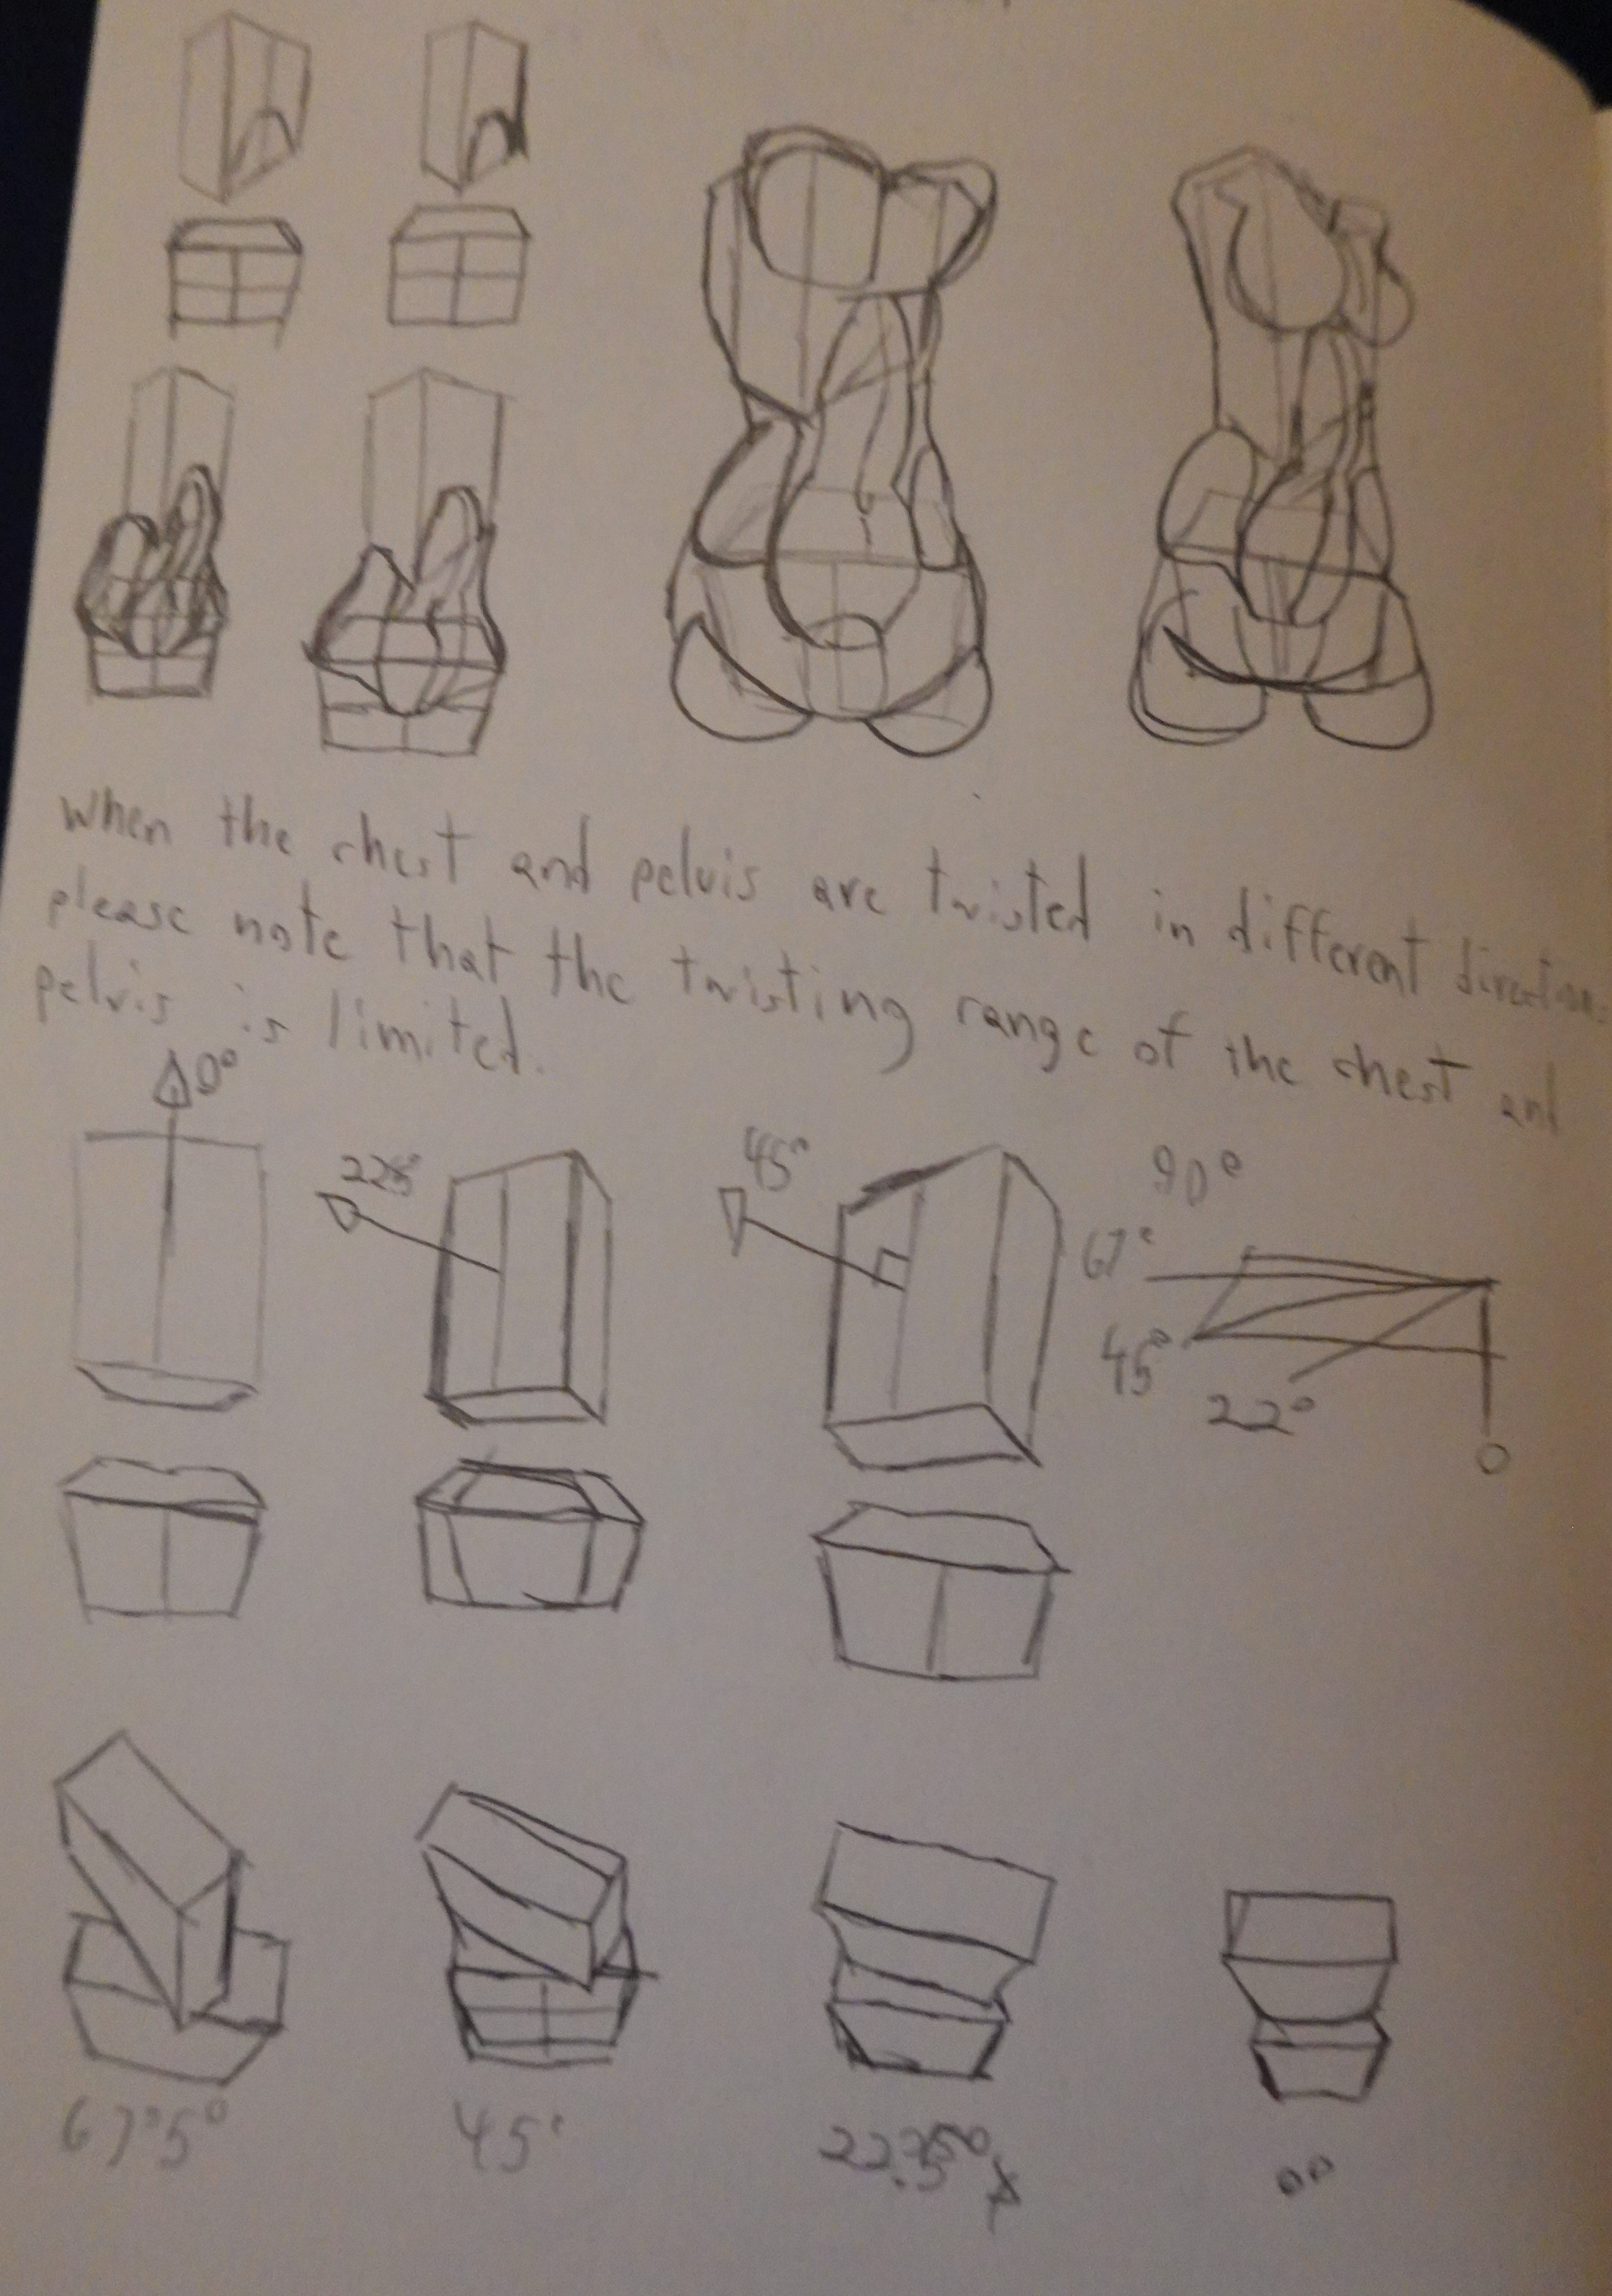 when the chest and pelvis are twisted in different directions
please note that the twisting range of the chest and
pelvis is limited.
0°
22.5°
45°
90°
67°
45°
22°
0
67.5°
45°
22.5°
0°